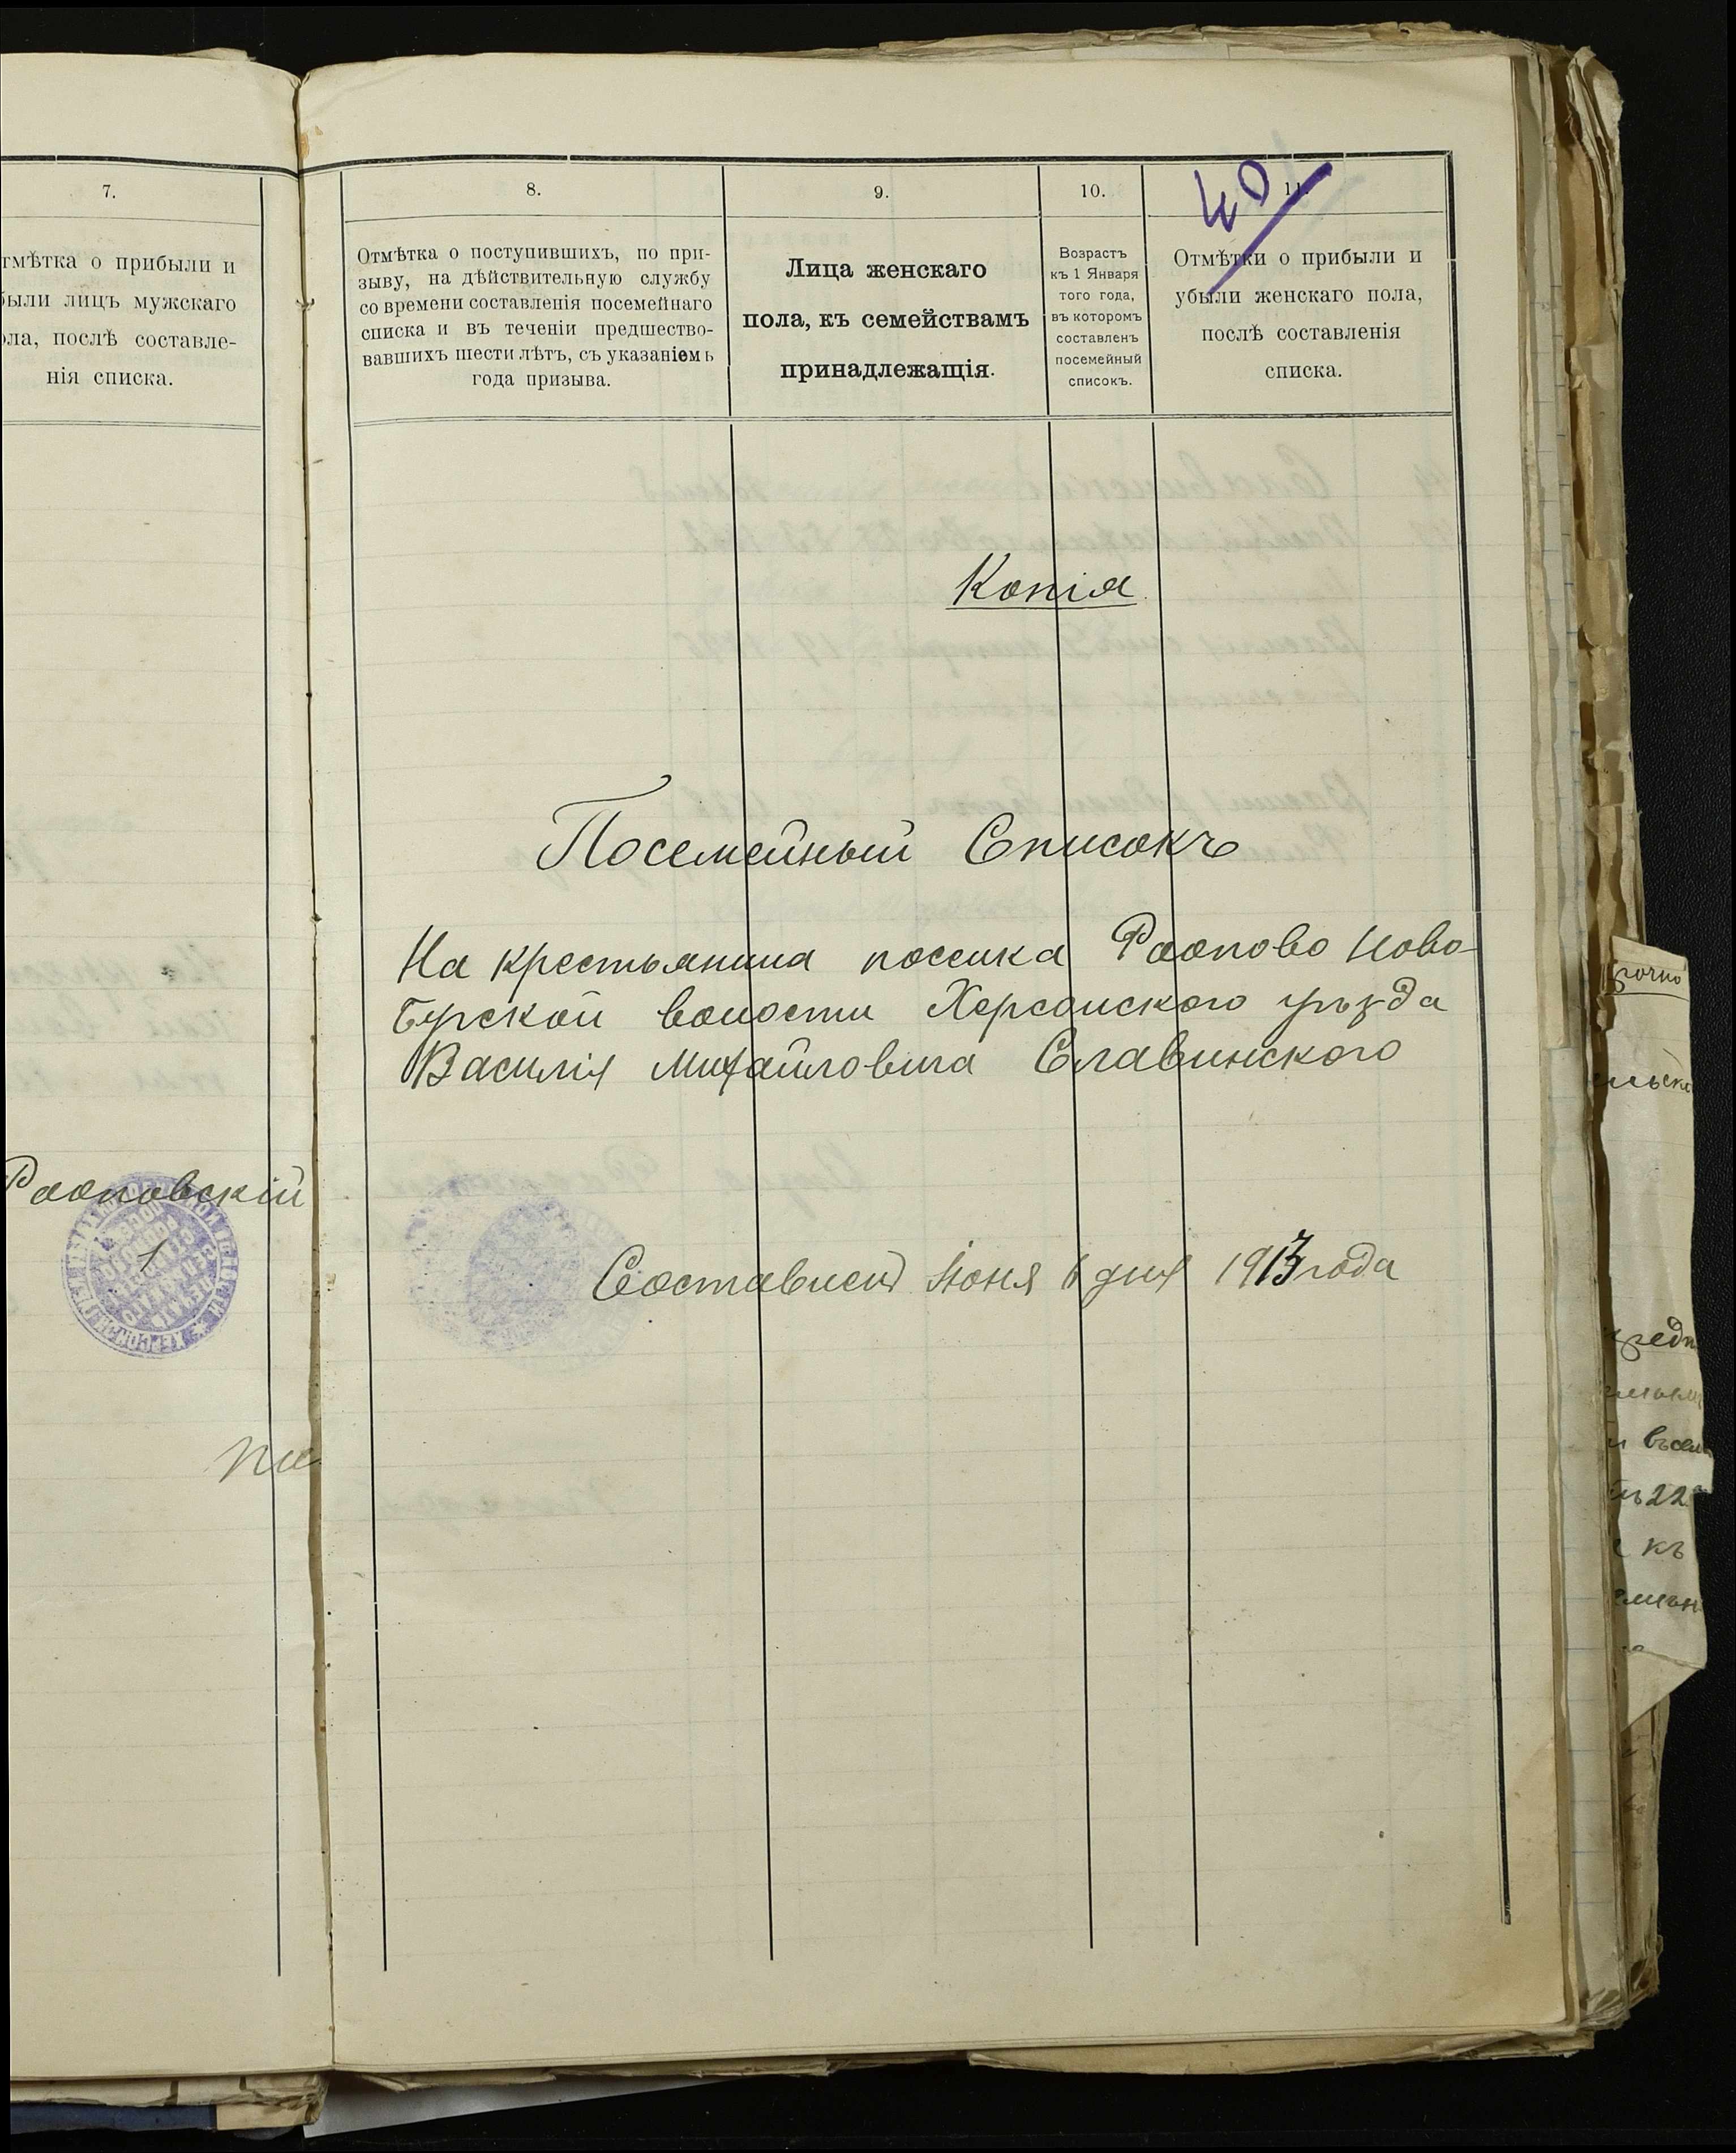 7.
тмѣтка о прибыли и
были лицъ мужскаго
ола, послѣ составле-
нія списка.
Раоповскій
1
8.
Отмѣтка о поступившихъ, по при-
зыву, на дѣйствительную службу
со времени составленія посемейнаго
списка и въ теченіи предшество-
вавшихъ шести лѣтъ, съ указаніемъ
года призыва.
9.
Лица женскаго
пола, къ семействамъ
принадлежащія.
10.
Возрастъ
къ 1 Января
того года,
въ которомъ
составленъ
посемейный
списокъ.
11.
Отмѣтки о прибыли и
убыли женскаго пола,
послѣ составленія
списка.
Копія
Посемейный Списокъ
На крестьянина поселка Раопово Ново-
Бурской волости Херсонского уѣзда
Василія Михайловича Славинского
Составленъ Іюня 6 дня 1913 года
рочно
22
къ